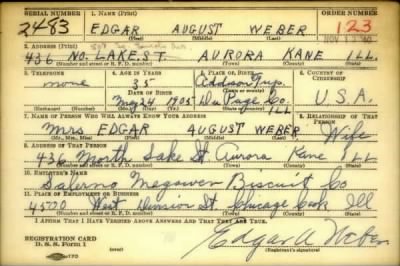 SERIAL NUMBER 1. NAME (Print) ORDER NUMBER
2483 EDGAR AUGUST WEBER 123
(First) (Middle) (Last)
2. ADDRESS (Print)
436 NO. LAKE ST. AURORA KANE ILL.
(Number and street or R. F. D. number) (Town) (County) (State)
3. TELEPHONE 4. AGE IN YEARS 5. PLACE OF BIRTH 6. COUNTRY OF CITIZENSHIP
none 35 Addison Twp.
DATE OF BIRTH (Town or county)
May 24 1905 Du Page Co. Ill U.S.A.
(Exchange) (Number) (Mo.) (Day) (Yr.) (State or country)
7. NAME OF PERSON WHO WILL ALWAYS KNOW YOUR ADDRESS 8. RELATIONSHIP OF THAT PERSON
Mrs EDGAR AUGUST WEBER Wife
(Mr., Mrs., Miss) (First) (Middle) (Last)
9. ADDRESS OF THAT PERSON
436 North Lake St Aurora Kane ILL
(Number and street or R. F. D. number) (Town) (County) (State)
10. EMPLOYER'S NAME
Salerno Megowen Biscuit Co
11. PLACE OF EMPLOYMENT OR BUSINESS
4500 West Division St. Chicago Cook Ill
(Number and street or R. F. D. number) (Town) (County) (State)
I AFFIRM THAT I HAVE VERIFIED ABOVE ANSWERS AND THAT THEY ARE TRUE.
REGISTRATION CARD
D. S. S. Form 1
Edgar A Weber